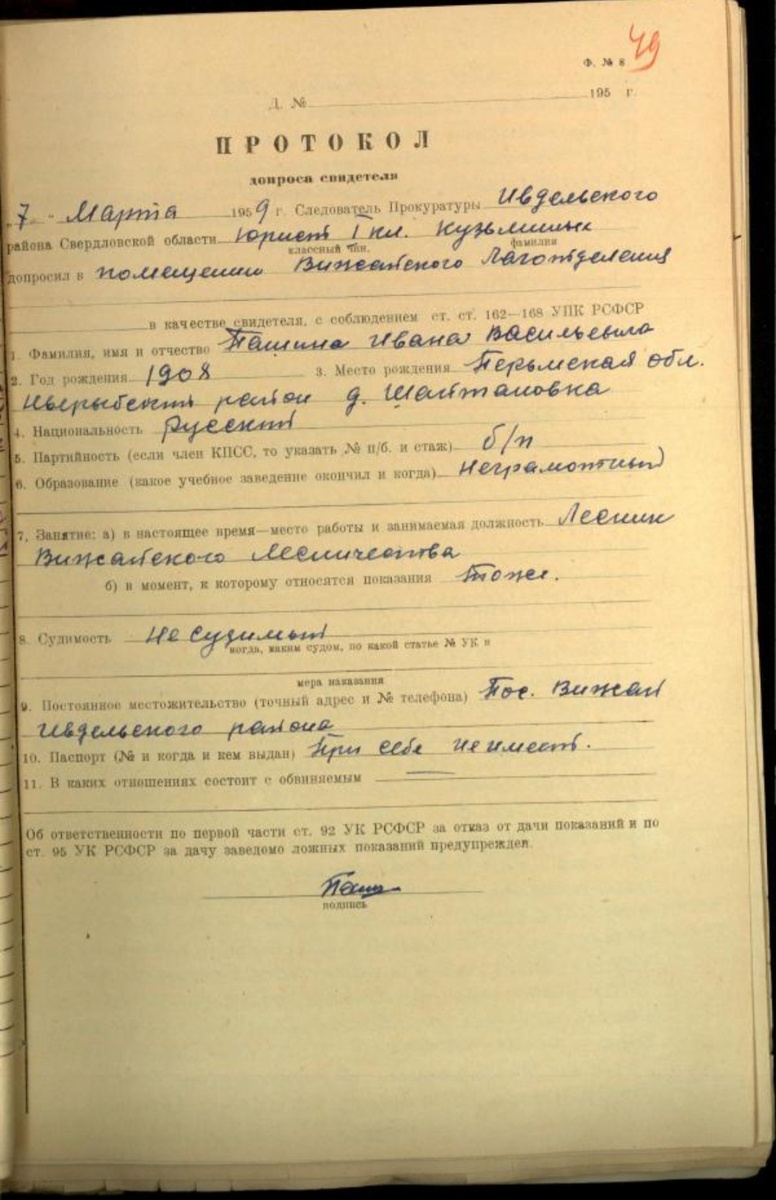 49
Ф. № 8
Д. № 195 г.
ПРОТОКОЛ
допроса свидетеля
„7 " Марта 1959 г. Следователь Прокуратуры Ивдельского
района Свердловской области юрист I кл. Кузьминых
классный чин. фамилия
допросил в помещении Вижайского Лаготделения
в качестве свидетеля, с соблюдением ст. ст. 162—168 УПК РСФСР
1. Фамилия, имя и отчество Пашина Ивана Васильевича
2. Год рождения 1908 3. Место рождения Перьмская обл.
район д. Шайтановка
4. Национальность Русский
5. Партийность (если член КПСС, то указать № п/б. и стаж) б/п
6. Образование (какое учебное заведение окончил и когда) Неграмотный
7. Занятие: а) в настоящее время—место работы и занимаемая должность Лесник
Вижайского Лесничества
б) в момент, к которому относятся показания Тоже.
8. Судимость Не судимый
когда, каким судом, по какой статье № УК и
мера наказания
9. Постоянное местожительство (точный адрес и № телефона) Пос. Вижай
Ивдельского района
10. Паспорт (№ и когда и кем выдан) При себе не имеет.
11. В каких отношениях состоит с обвиняемым —
Об ответственности по первой части ст. 92 УК РСФСР за отказ от дачи показаний и по
ст. 95 УК РСФСР за дачу заведомо ложных показаний предупрежден.
Паш
подпись